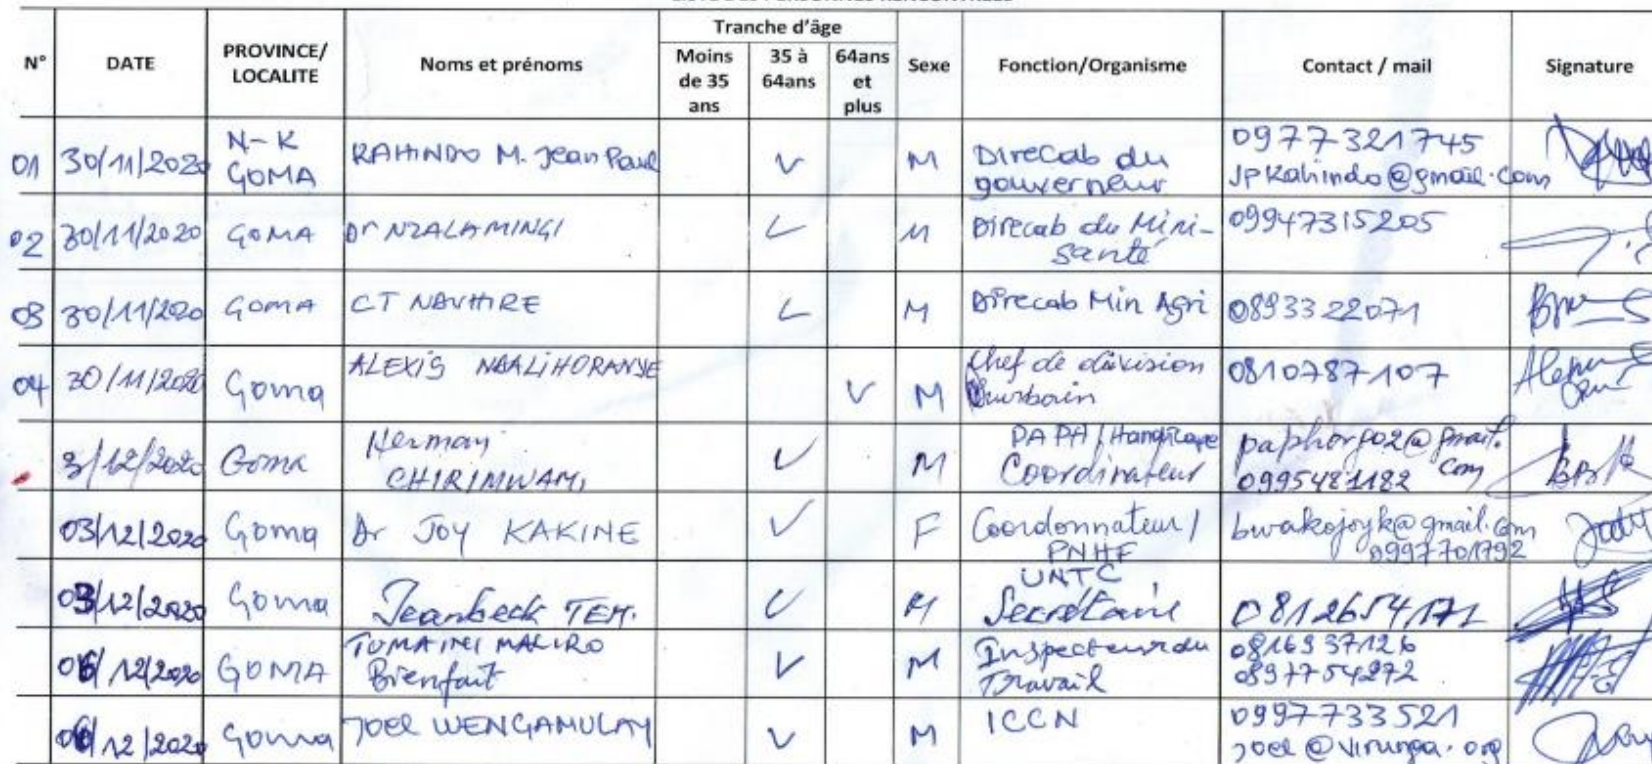 N° DATE PROVINCE/ LOCALITE Noms et prénoms Tranche d'âge Moins de 35 ans 35 à 64ans 64ans et plus Sexe Fonction/Organisme Contact / mail Signature
01 30/11/2020 N-K GOMA KAHINDO M. Jean Paul V M Direcab du gouverneur 0977321745 JPKahindo@gmail.com
02 30/11/2020 GOMA Dr NZALAMINGI V M Direcab du Mini-santé 09947315205
03 30/11/2020 GOMA CT NAVHIRE V M Direcab Min Agri 0893322071
04 30/11/2020 Goma ALEXIS V M Chef de division 0810787107
3/12/2020 Goma Herman CHIRIMWAMI V M PAPH/Handicape Coordinateur 0995481182
03/12/2020 Goma Dr JOY KAKINE V F Coordonnateur/ PNHF bwakojoyk@gmail.com 0997701792
03/12/2020 Goma Jeanbeck TEM. V M UNTC Secrétaire 0812654171
06/12/2020 GOMA TUMAINI MALIRO Bienfait V M Inspecteur du Travail 0816937126 0897754272
06/12/2020 Goma JOEL WENGAMULAY V M ICCN 0997733521 joel@virunga.org